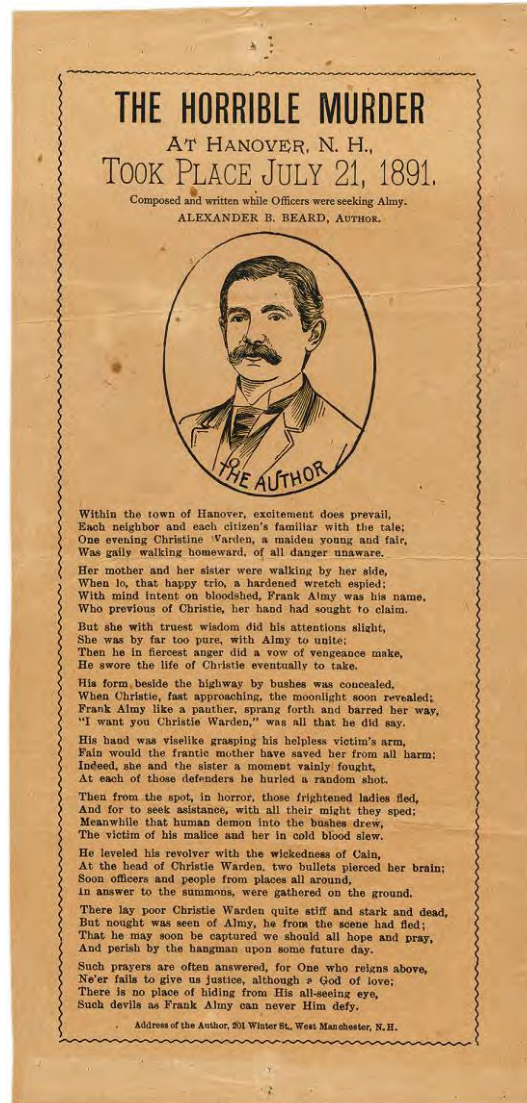 THE HORRIBLE MURDER
AT HANOVER, N. H.,
TOOK PLACE JULY 21, 1891.
Composed and written while Officers were seeking Almy.
ALEXANDER B. BEARD, AUTHOR.
THE AUTHOR
Within the town of Hanover, excitement does prevail,
Each neighbor and each citizen's familiar with the tale;
One evening Christine Warden, a maiden young and fair,
Was gaily walking homeward, of all danger unaware.
Her mother and her sister were walking by her side,
When lo, that happy trio, a hardened wretch espied;
With mind intent on bloodshed, Frank Almy was his name,
Who previous of Christie, her hand had sought to claim.
But she with truest wisdom did his attentions slight,
She was by far too pure, with Almy to unite;
Then he in fiercest anger did a vow of vengeance make,
He swore the life of Christie eventually to take.
His form, beside the highway by bushes was concealed,
When Christie, fast approaching, the moonlight soon revealed;
Frank Almy like a panther, sprang forth and barred her way,
"I want you Christie Warden," was all that he did say.
His hand was viselike grasping his helpless victim's arm,
Fain would the frantic mother have saved her from all harm;
Indeed, she and the sister a moment vainly fought,
At each of those defenders he hurled a random shot.
Then from the spot, in horror, those frightened ladies fled,
And for to seek asistance, with all their might they sped;
Meanwhile that human demon into the bushes drew,
The victim of his malice and her in cold blood slew.
He leveled his revolver with the wickedness of Cain,
At the head of Christie Warden, two bullets pierced her brain;
Soon officers and people from places all around,
In answer to the summons, were gathered on the ground.
There lay poor Christie Warden quite stiff and stark and dead,
But nought was seen of Almy, he from the scene had fled;
That he may soon be captured we should all hope and pray,
And perish by the hangman upon some future day.
Such prayers are often answered, for One who reigns above,
Ne'er fails to give us justice, although a God of love;
There is no place of hiding from His all-seeing eye,
Such devils as Frank Almy can never Him defy.
Address of the Author, 201 Winter St., West Manchester, N. H.